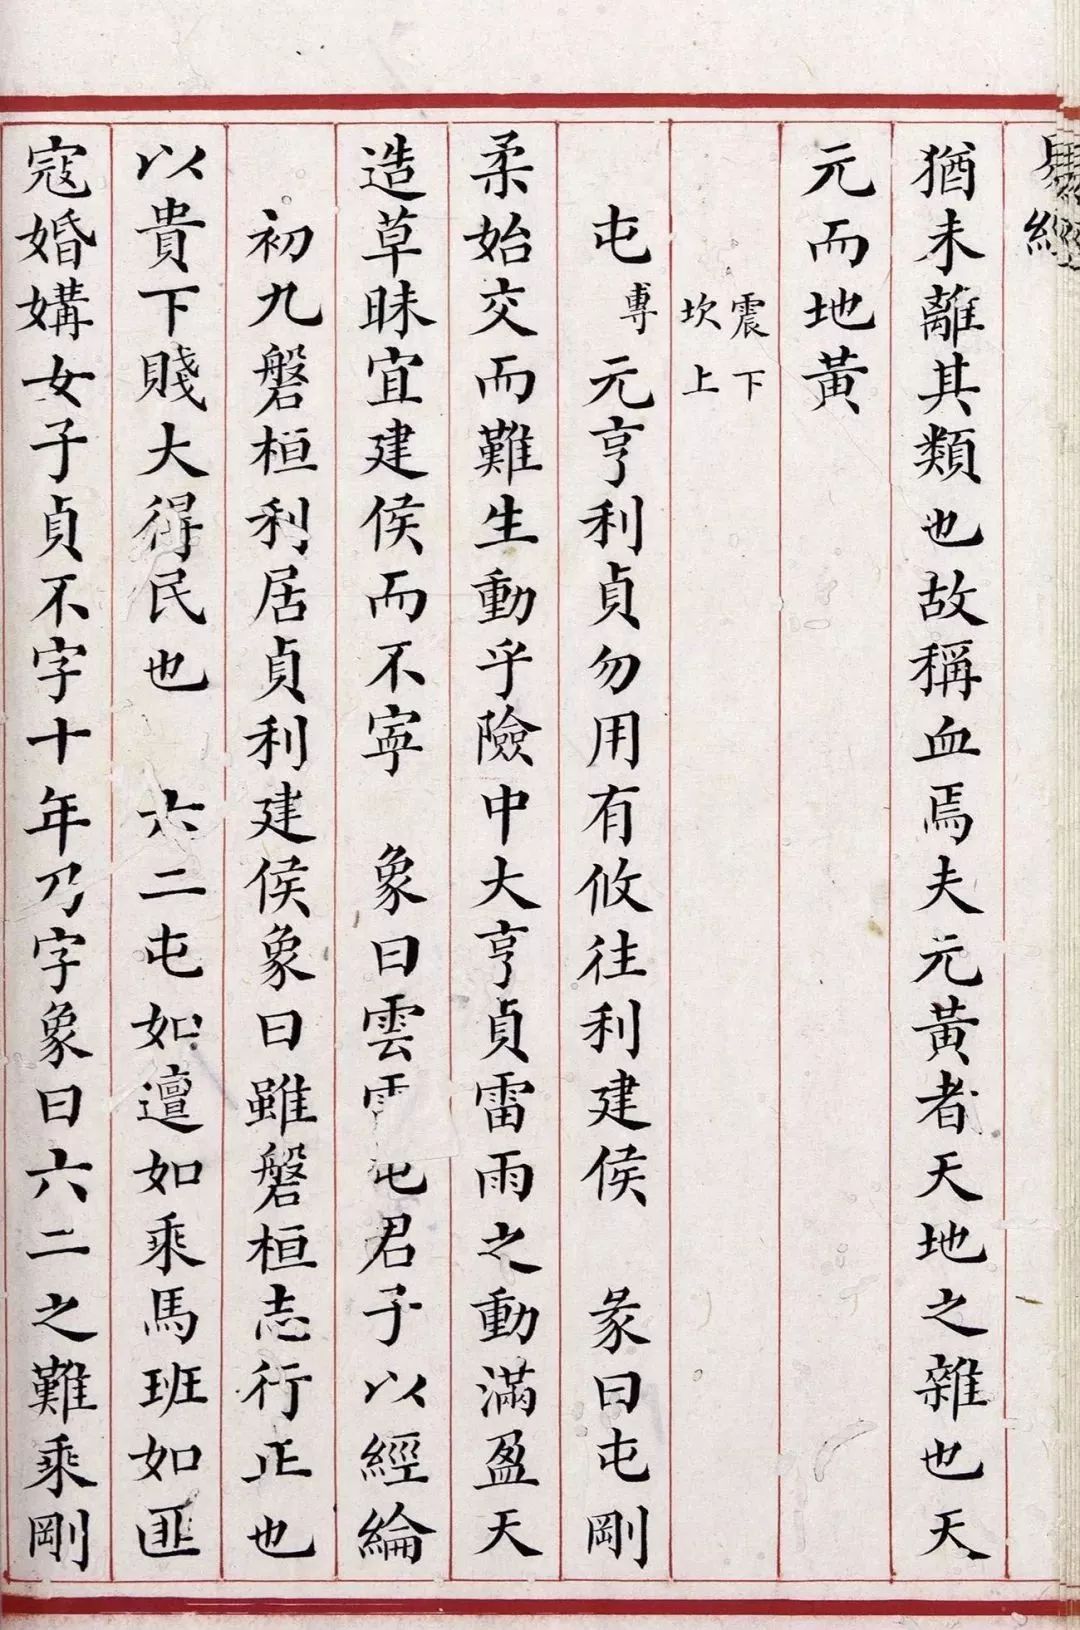 易經
猶未離其類也故稱血焉夫元黃者天地之雜也天
元而地黃
震下
坎上
屯 專 元亨利貞勿用有攸往利建侯 彖曰屯剛
柔始交而難生動乎險中大亨貞雷雨之動滿盈天
造草昧宜建侯而不寧 象曰雲雷屯君子以經綸
初九磐桓利居貞利建侯象曰雖磐桓志行正也
以貴下賤大得民也 六二屯如邅如乘馬班如匪
寇婚媾女子貞不字十年乃字象曰六二之難乘剛